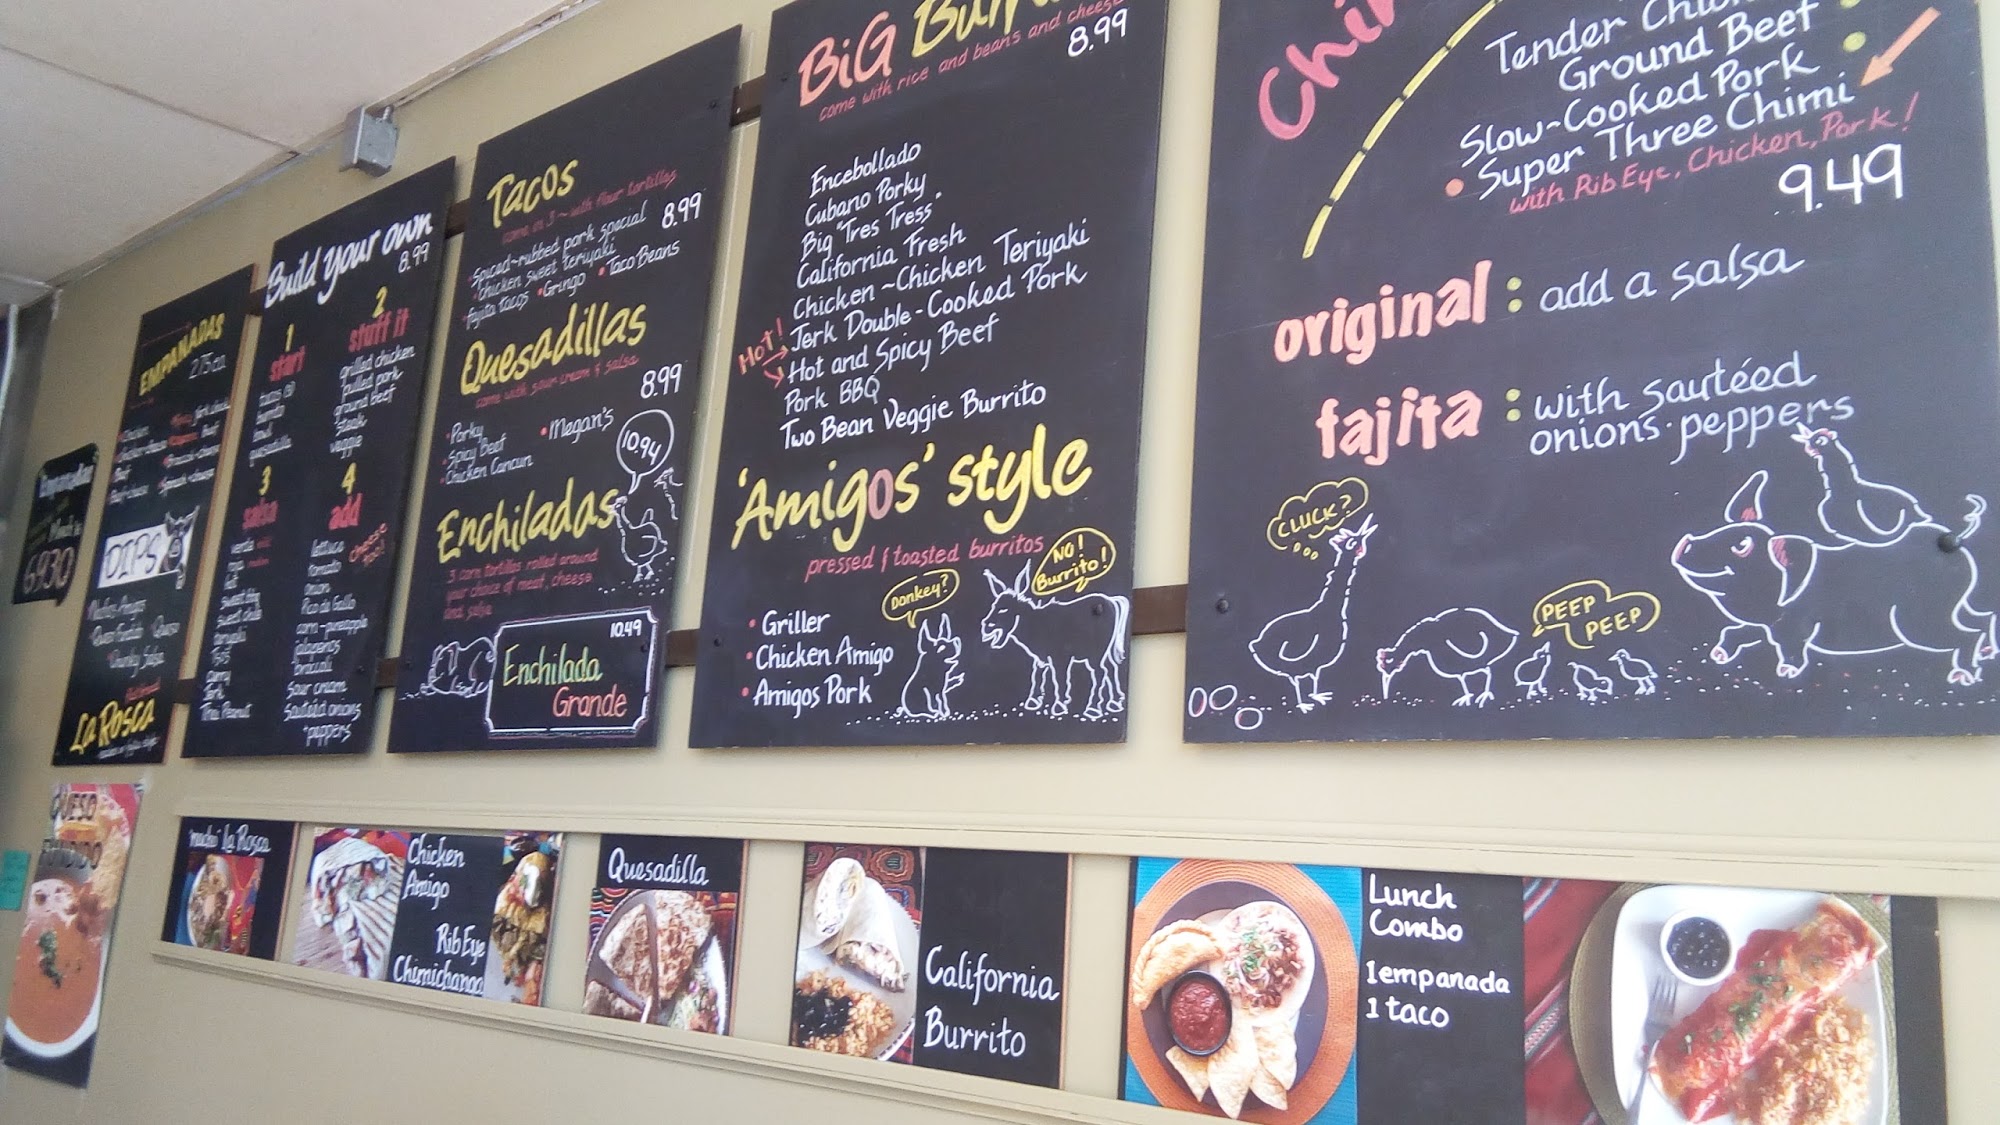 EMPANADAS
2.75 ea.
Chicken
Beef
DIPS
Muchos Amigos
Chunky Salsa
La Rosca
6930
Build your own
8.99
1
start
tacos (3)
burrito
bowl
quesadilla
2
stuff it
grilled chicken
pulled pork
ground beef
steak
veggie
3
salsa
verde
roja
hot
curry
Jerk
Thai Peanut
4
add
cheese too!
lettuce
tomato
onion
Pico de Gallo
corn-pineapple
jalapeños
broccoli
sour cream
Sautéed onions
+peppers
Tacos
come in 3 ~ with flour tortillas
8.99
• Spiced-rubbed pork special
• chicken sweet teriyaki
• fajita tacos • Gringo • Taco Beans
Quesadillas
come with sour cream & salsa
8.99
• Porky
• Spicy Beef
• Chicken Cancun
• Megan's
10.94
Enchiladas
3 corn tortillas rolled around
your choice of meat, cheese
and salsa
10.49
Enchilada
Grande
BiG
come with rice and beans and cheese
8.99
Encebollado
Cubano Porky
Big "Tres Tress"
California Fresh
Chicken~Chicken Teriyaki
Hot!
Jerk Double-Cooked Pork
Hot and Spicy Beef
Pork BBQ
Two Bean Veggie Burrito
'Amigos' style
pressed & toasted burritos
• Griller
• Chicken Amigo
• Amigos Pork
Donkey?
NO!
Burrito!
Tender
Ground Beef
Slow-Cooked Pork
• Super Three Chimi
with Rib Eye, Chicken, Pork!
9.49
original : add a salsa
fajita : with sautéed
onions·peppers
CLUCK?
PEEP
PEEP
QUESO
FUNDIDO
'mucho' La Rosca
Chicken
Amigo
Rib Eye
Chimichanga
Quesadilla
California
Burrito
Lunch
Combo
1 empanada
1 taco